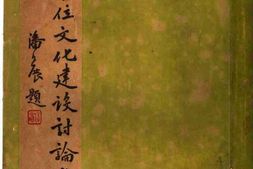 位文化建設討論
潘公展題